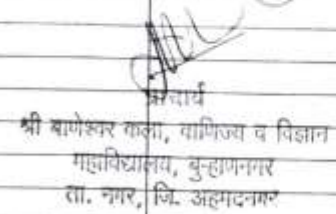 प्राचार्य
श्री बाणेश्वर कला, वाणिज्य व विज्ञान
महाविद्यालय, बु-हाणनगर
ता. नगर, जि. अहमदनगर